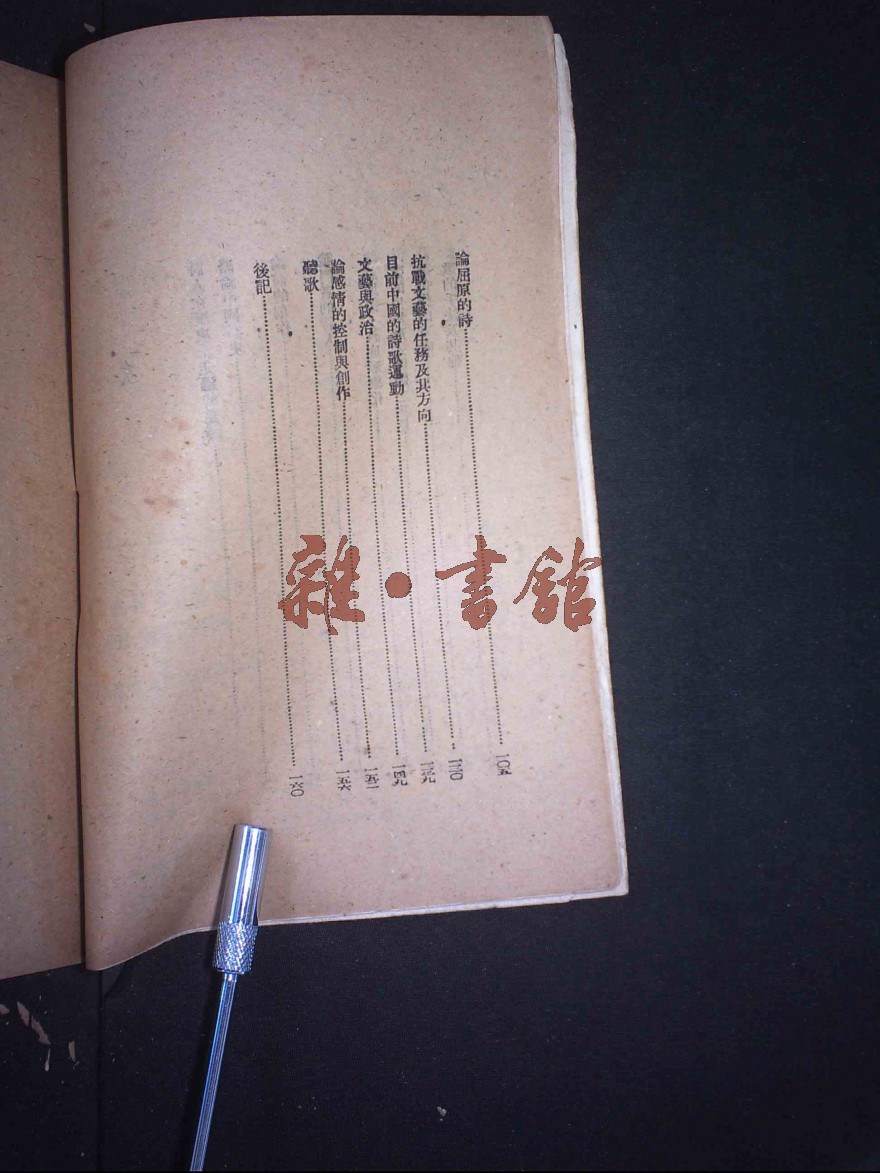 論屈原的詩……一〇五
抗戰文藝的任務及其方向……一三〇
目前中國的詩歌運動……一三九
文藝與政治……一四九
論感情的控制與創作……一五二
聽歌……一五六
後記……一六〇
雜·書館